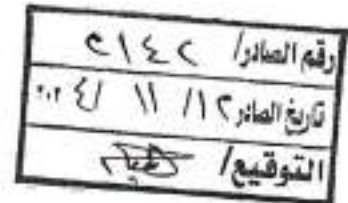 رقم الصادر/ ٢١٤٢
تاريخ الصادر ١٢/ ١١ /٢٠٢٤
التوقيع/